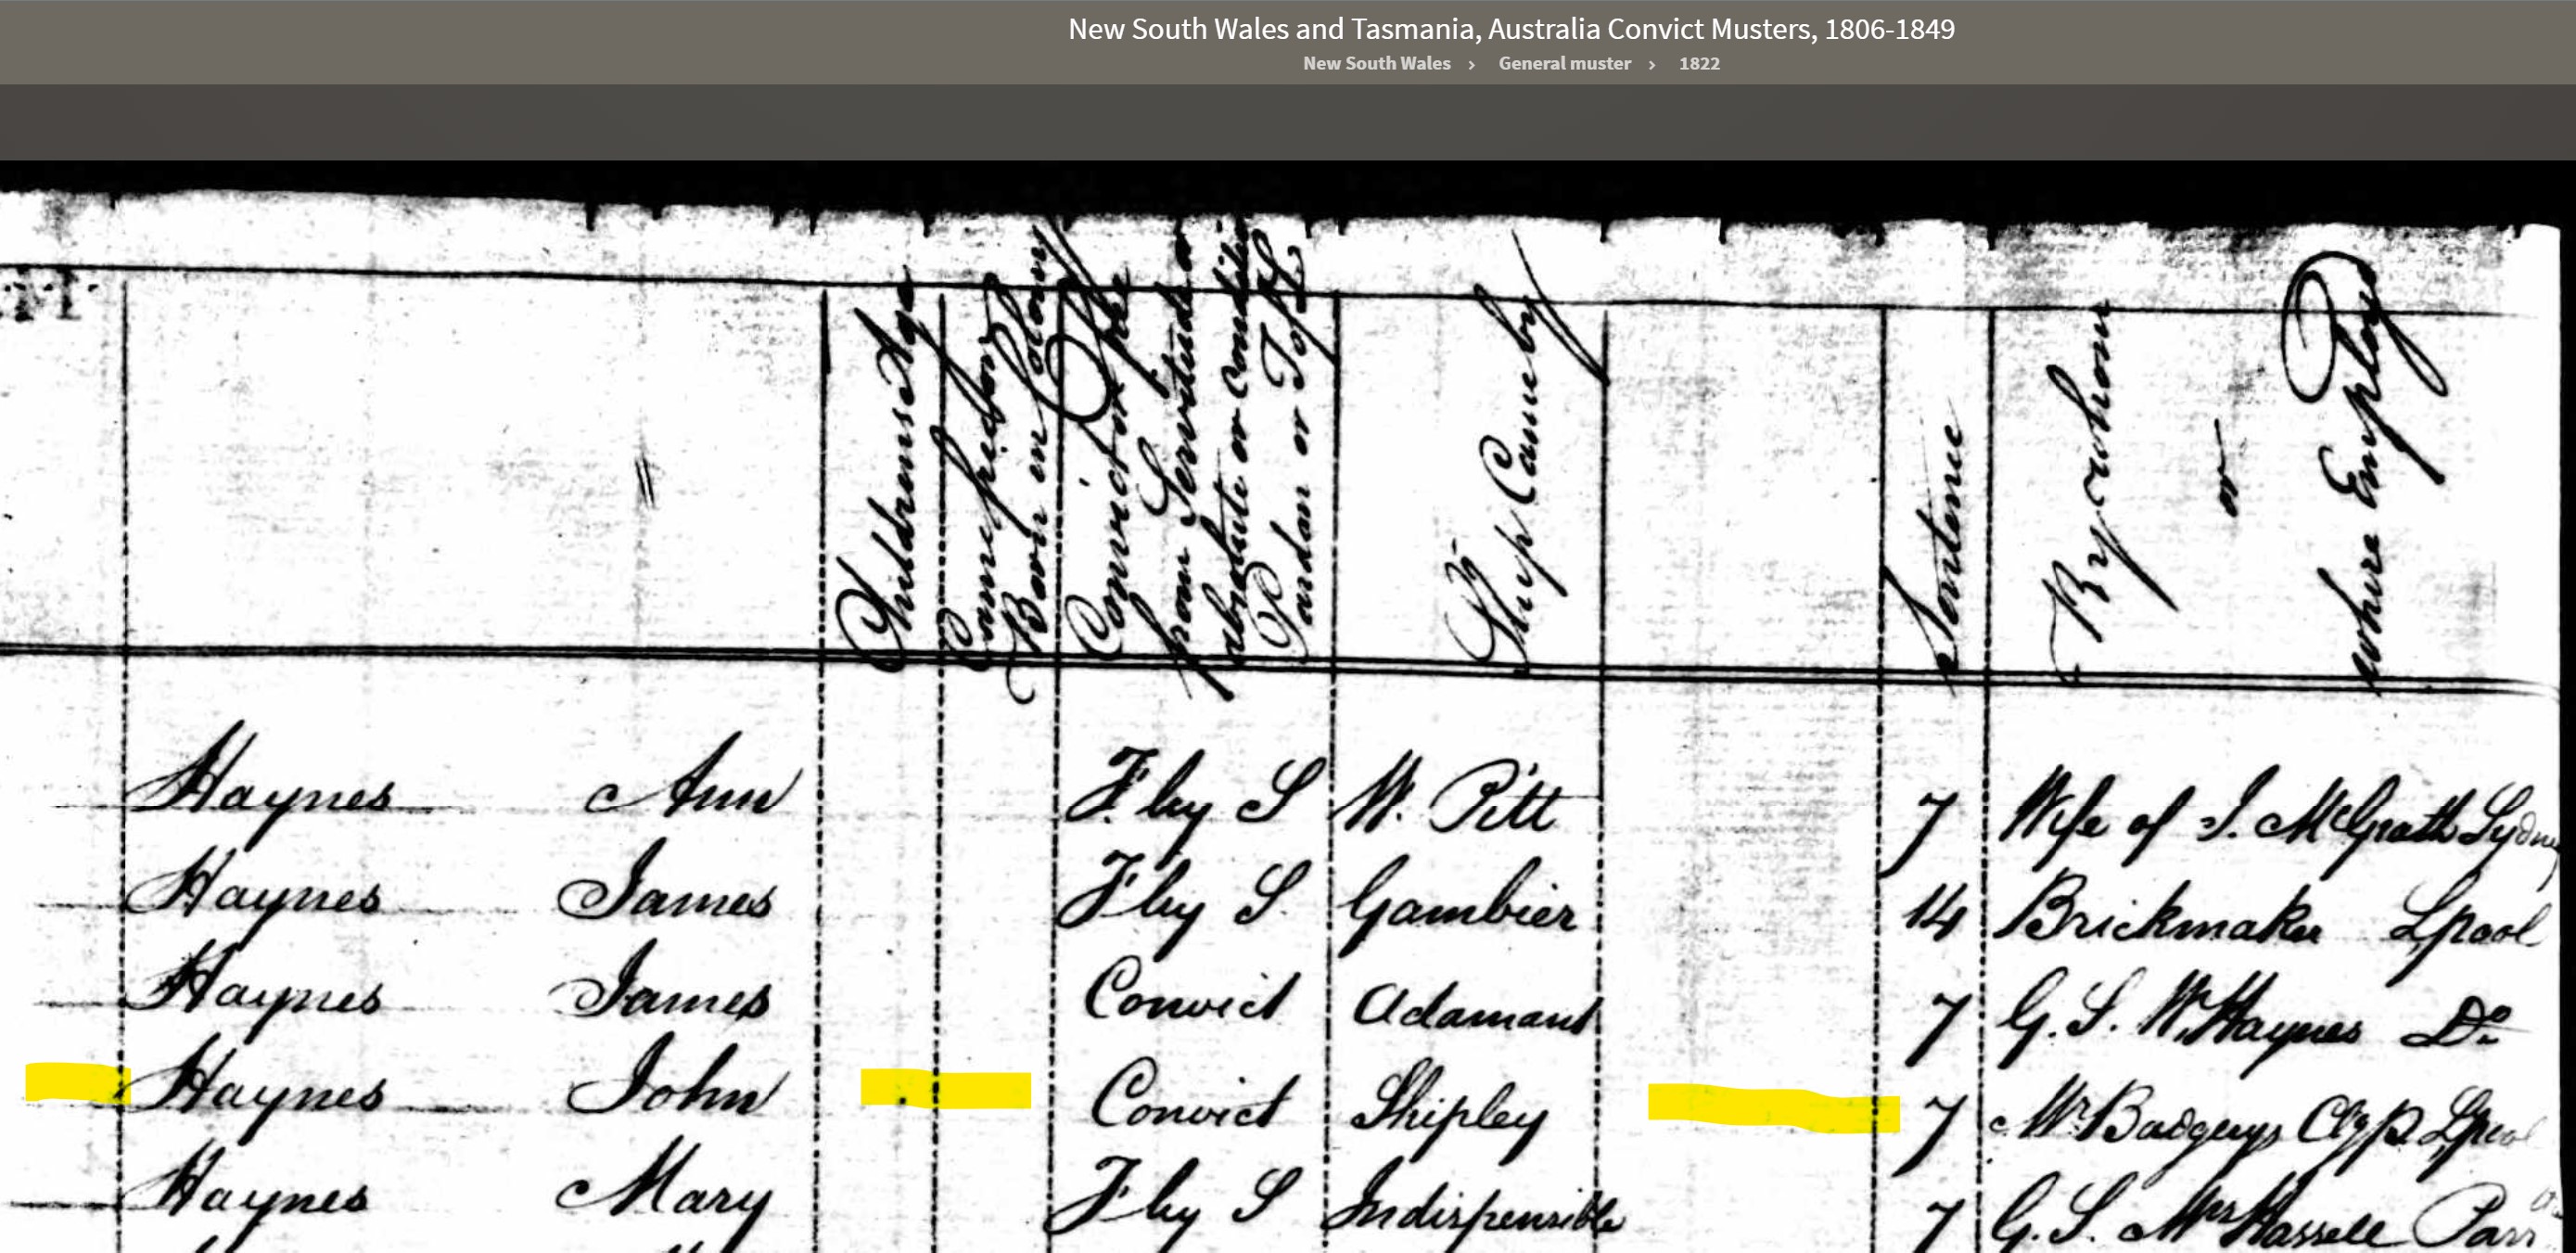 New South Wales and Tasmania, Australia Convict Musters, 1806-1849
New South Wales › General muster › 1822
Childrens Age
Came free or
Born in Colony
Convict or free
from Servitude or
absolute or Condit
Pardon or Tofl
Ship Came by
Sentence
By whom
or
where Employd
Haynes Ann F. by S W. Pitt 7 Wife of J. McGrath Sydney
Haynes James F by S. Gambier 14 Brickmaker Lpool
Haynes James Convict Adamant 7 G. S. Wm Haynes Do
Haynes John Convict Shipley 7 Mr Badgerys Lpool
Haynes Mary F by S Indispensible 7 G. S. Mrs Hassell Parr